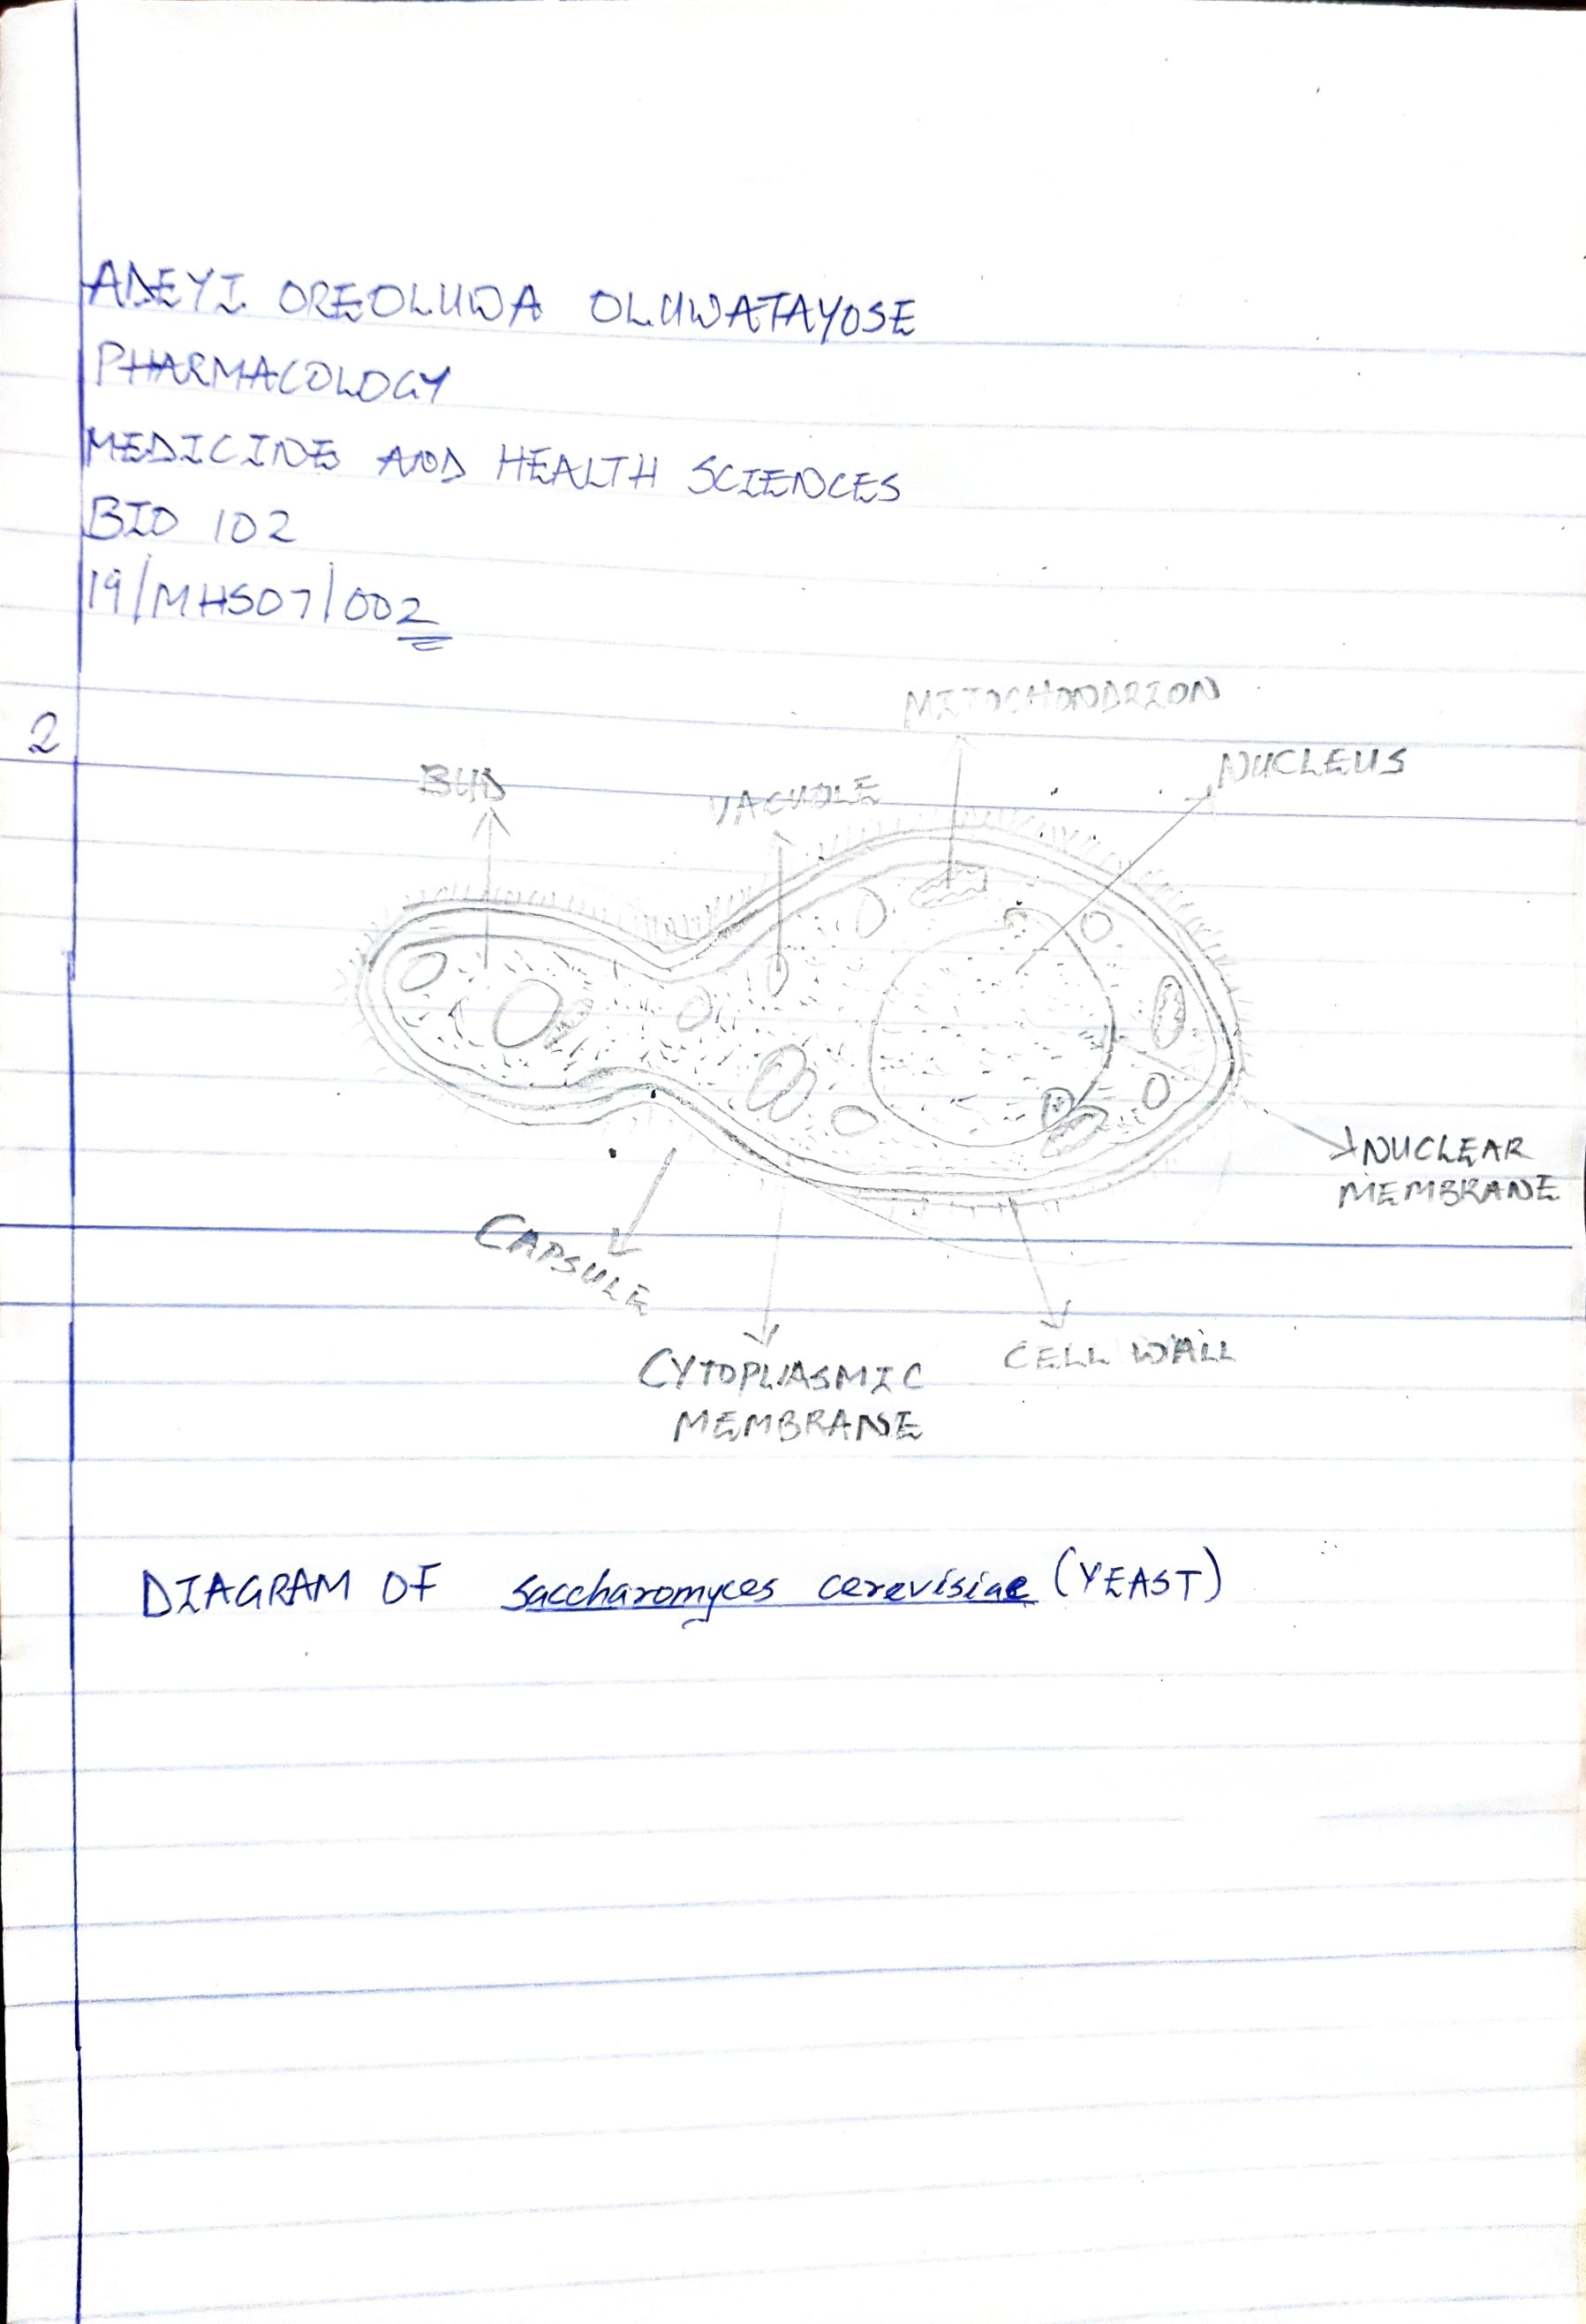 ADEYI OREOLUWA OLUWATAYOSE
PHARMACOLOGY
MEDICINE AND HEALTH SCIENCES
BIO 102
19/MHS07/002
2
MITOCHONDRION
NUCLEUS
BUD
VACUOLE
NUCLEAR
MEMBRANE
CAPSULE
CYTOPLASMIC
MEMBRANE
CELL WALL
DIAGRAM OF Saccharomyces cerevisiae (YEAST)